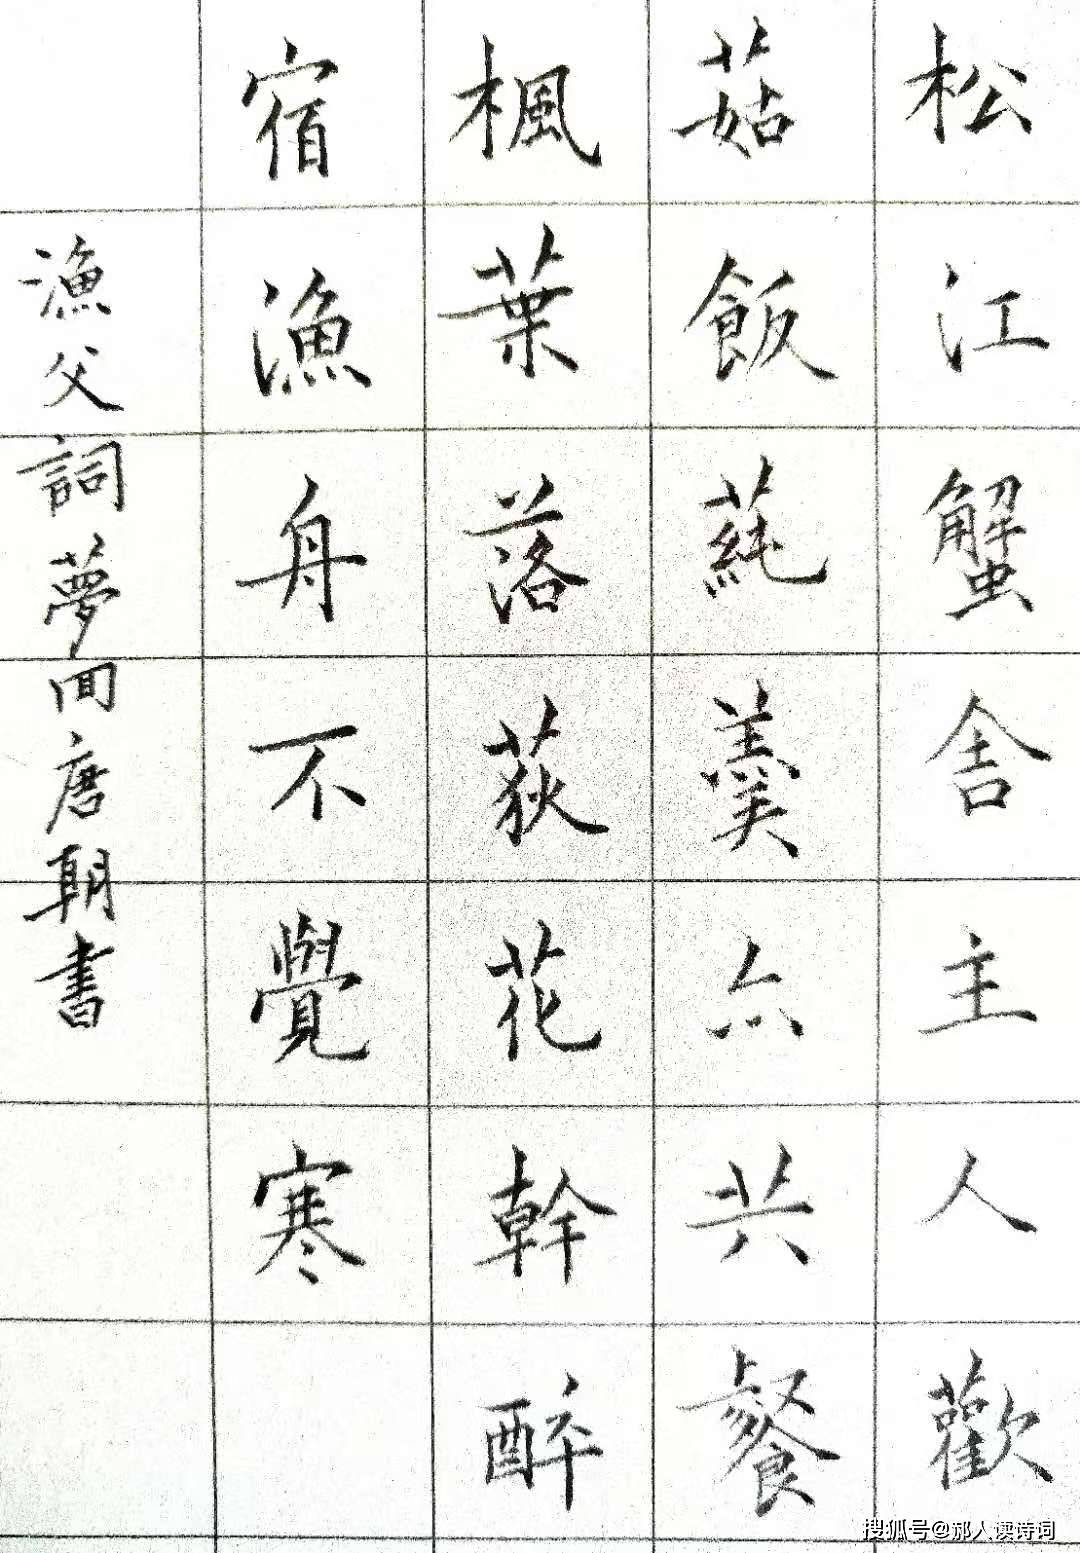 松江蟹舍主人歡
菰飯蒓羹亦共餐
楓葉落荻花幹醉
宿漁舟不覺寒
漁父詞夢回唐朝書
搜狐号@郝人读诗词